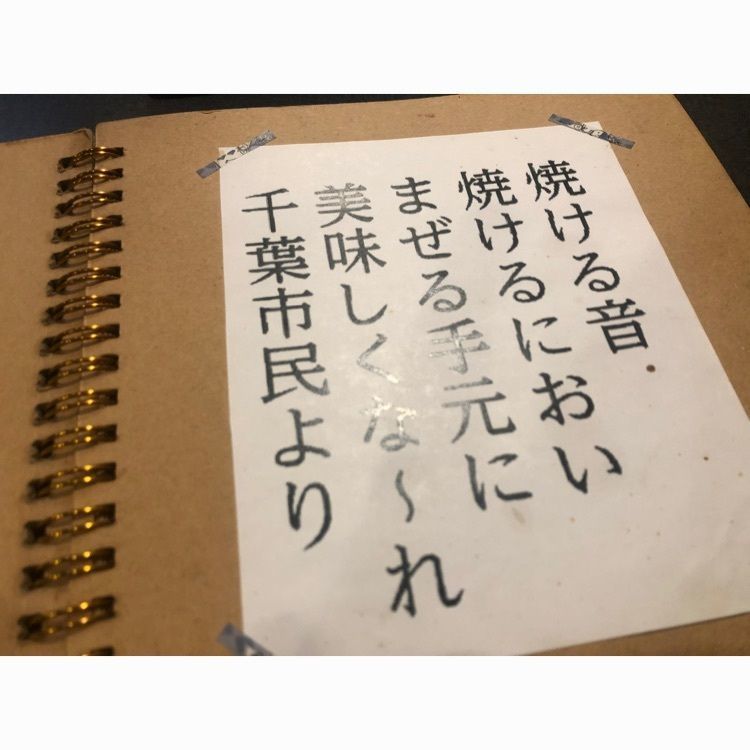 焼ける音
焼けるにおい
まぜる手元に
美味しくな～れ
千葉市民より